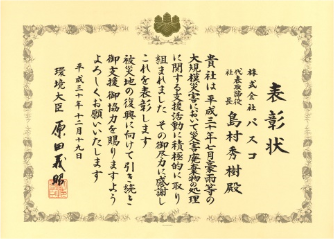 表彰状
株式会社 パスコ
代表取締役
社長
島村秀樹殿
貴社は平成三十年七月豪雨等の
大規模災害において災害廃棄物の処理
に関する支援活動に積極的に取り
組まれました その御尽力に感謝し
これを表彰します
被災地の復興に向けて引き続き
御支援 御協力を賜りますよう
よろしくお願いいたします
平成三十年十二月十九日
環境大臣 原田義昭